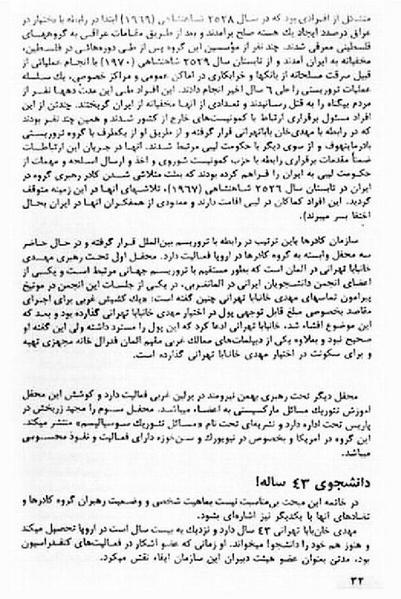 متشکل از افرادی بود که در سال ۲۵۲۸ شاهنشاهی (۱۹۶۹) ابتدا در رابطه با بختیار در
عراق درصدد ایجاد یک هسته مسلح برآمدند و بعد از طریق مقامات عراقی به گروههای
فلسطینی معرفی شدند. چند نفر از مؤسسین این گروه پس از طی دوره‌هائی در فلسطین،
مخفیانه به ایران آمدند و از تابستان سال ۲۵۲۹ شاهنشاهی (۱۹۷۰) با انجام عملیاتی از
قبیل سرقت مسلحانه از بانکها و خرابکاری در اماکن عمومی و مراکز خصوصی، یک سلسله
عملیات تروریستی را طی ۶ سال اخیر انجام دادند. این افراد طی این مدت دهها نفر از
مردم بیگناه را به قتل رسانیدند و تعدادی از آنها مخفیانه از ایران گریختند. چندتن از این
افراد مسئول برقراری ارتباط با کمونیست‌های خارج از کشور شدند و همین چند نفر بودند
که در رابطه با مهدی خان باباتهرانی قرار گرفته و از طریق او از یکطرف با گروه تروریستی
بادرماینهوف و از سوی دیگر با حکومت لیبی مرتبط شدند. آنها در جریان این ارتباطات
ضمناً مقدمات برقراری رابطه با حزب کمونیست شوروی و اخذ و ارسال اسلحه و مهمات از
حکومت لیبی به ایران را فراهم کرده بودند که بعلت متلاشی شدن کادر رهبری گروه در
ایران در تابستان سال ۲۵۳۶ شاهنشاهی (۱۹۶۷)، تلاشهای آنها در این زمینه متوقف
گردید. این افراد کماکان در لیبی اقامت دارند و معدودی از همفکران آنها در ایران بحال
اختفا بسر میبرند).
سازمان کادرها باین ترتیب در رابطه با تروریسم بین‌الملل قرار گرفته و در حال حاضر
سه محفل وابسته به گروه کادرها در اروپا فعالیت دارد. محفل اول تحت رهبری مهدی
خانبابا تهرانی در آلمان است که بطور مستقیم با تروریسم جهانی مرتبط است و یکی از
اعضای انجمن دانشجویان ایرانی در آلمانغربی، در یکی از جلسات این انجمن در مونیخ
پیرامون تماسهای مهدی خانبابا تهرانی چنین گفته است: «یک کشیش غربی برای اجرای
مقاصد بخصوصی مبلغ قابل توجهی پول در اختیار مهدی خانبابا تهرانی گذارده بود و بعد که
این موضوع افشاء شد، خانبابا تهرانی ادعا کرد که این پول را مسترد داشته ولی این گفته او
صحیح نبود و بعلاوه یکی از دیپلمات‌های ممالک غربی مقیم آلمان فدرال خانه مجهزی تهیه
و برای سکونت در اختیار مهدی خانبابا تهرانی گذارده است.
محفل دیگر تحت رهبری بهمن نیرومند در برلین غربی فعالیت دارد و کوشش این محفل
آموزش تئوریک مسائل مارکسیستی به اعضاء میباشد. محفل سوم را مجید زربخش در
پاریس تحت اداره دارد و نشریه‌ای تحت نام «مسائل تئوریک سوسیالیسم» منتشر میکند.
این گروه در امریکا و بخصوص در نیویورک و سن‌حوزه دارای فعالیت و نفوذ محسوسی
میباشد.
دانشجوی ۴۳ ساله!
در خاتمه این مبحث بی‌مناسبت نیست بماهیت شخصی و وضعیت رهبران گروه کادرها و
تضادهای آنها با یکدیگر نیز اشاره‌ای بشود.
مهدی خان‌بابا تهرانی ۴۳ سال دارد و نزدیک به بیست سال است در اروپا تحصیل میکند
و هنوز هم خود را دانشجو! میخواند. او زمانی که عضو آشکار در فعالیت‌های کنفدراسیون
بود، مدتی بعنوان عضو هیئت دبیران این سازمان ایفاء نقش میکرد.
۳۲